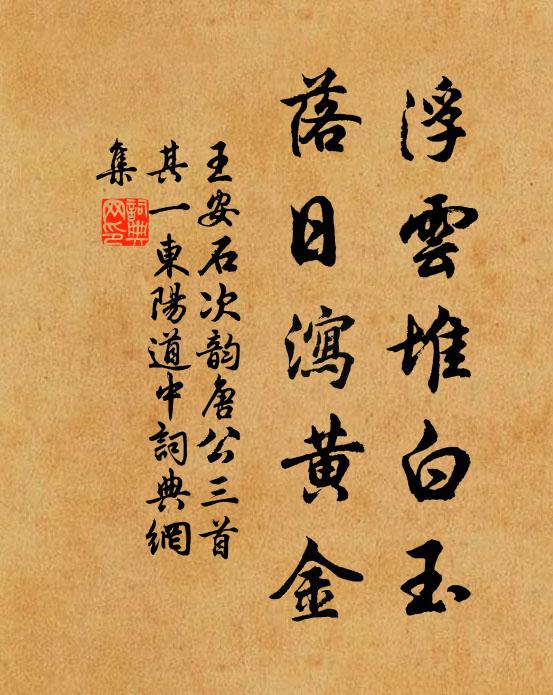 浮雲堆白玉
落日瀉黃金
王安石次韵唐公三首
其一東陽道中詞典網
集
詞典網印